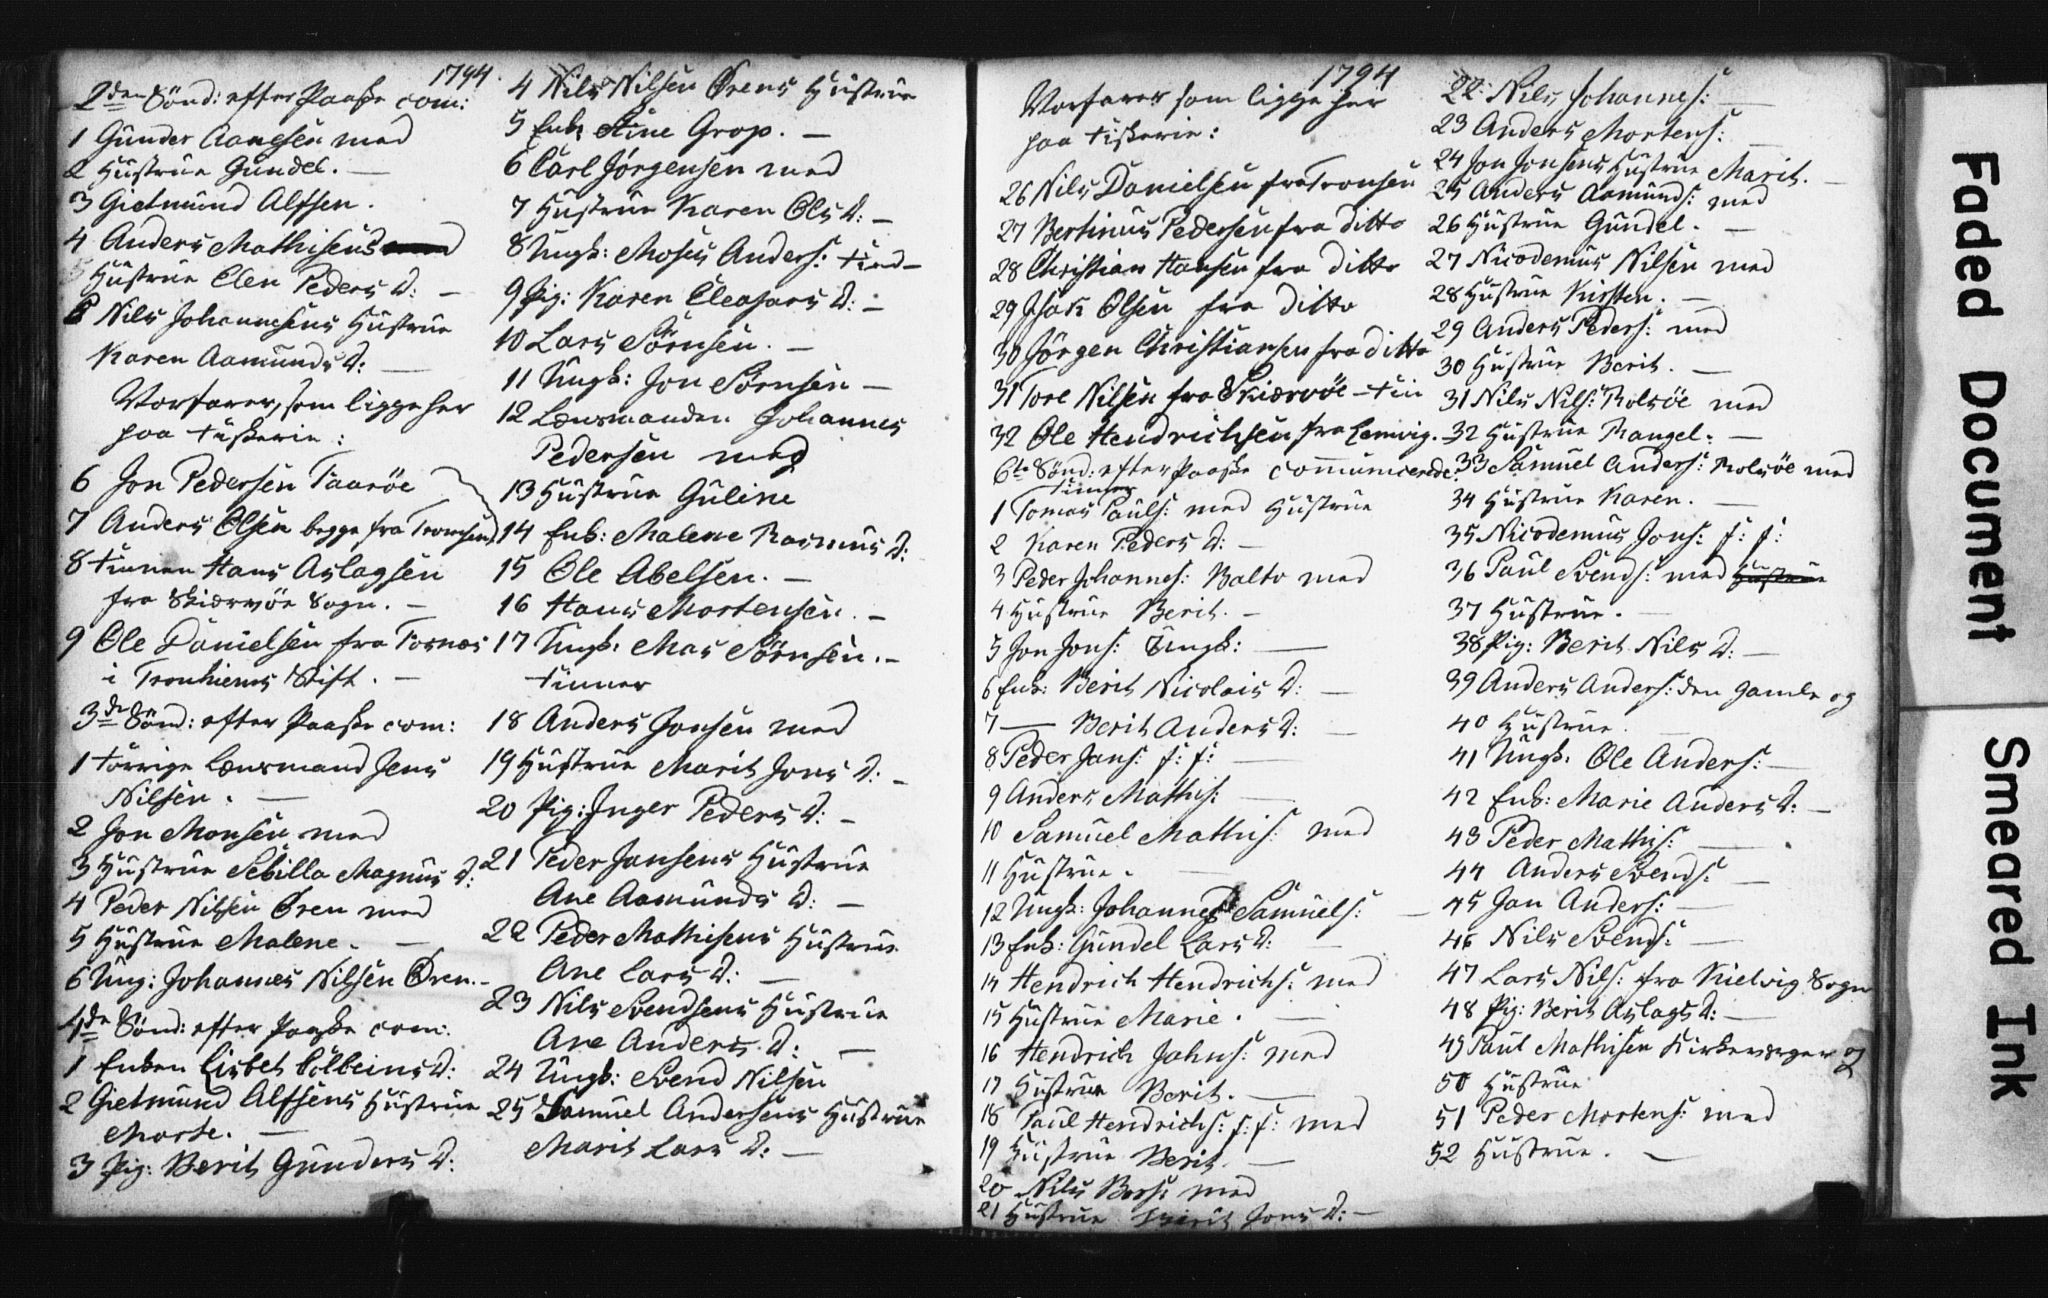 1794.
2den Sönd: efter Paaske com:
1 Gunder Aanesen med
2 Hustrue Gundel. —
3 Gietmund Alfsen.
4 Anders Mathisens
5 Hustrue Elen Peders D: —
6 Nils Johannesens Hustrue
Karen Aamunds D: —
Vorfarer, som ligge her
paa Fiskerie:
6 Jon Pedersen Taaröe
7 Anders Olsen begge fra Tromsen
8 Finnen Hans Aslagsen
fra Skiærvöe Sogn. —
9 Ole Danielsen fra
i Tronhiems Stift. —
3de Sönd: efter Paaske com:
1 forrige Lensmand Jens
Nilsen. —
2 Jon Monsen med
3 Hustrue Sebilla Magnus D:
4 Peder Nilsen Øren med
5 Hustrue Malene. —
6 Ung: Johannes Nilsen Øren. —
4de Sönd: efter Paaske com:
1 Enken Lisbet Colbeins D:
2 Gietmund Alfsens Hustrue
Marte. —
3 Pig: Berit Gunders D:
4 Nils Nilsen Ørens Hustrue
5 Enk: Stine Grop. —
6 Carl Jörgensen med
7 Hustrue Karen Ols D: —
8 Ungk: Moses Anders:
9 Pig: Karen Eleasars D: —
10 Lars Sörnsen. —
11 Ungk: Jon Sörnsen —
12 Lænsmanden Johannes
Pedersen med
13 Hustrue Guline
14 Enk: Malene Rasmus D:
15 Ole Abelsen. —
16 Hans Mortensen. —
17 Ungk: Mas Sörnsen. —
Finner
18 Anders Jonsen med
19 Hustrue Marit Jons D: —
20 Pig: Inger Peders D: —
21 Peder Jansens Hustrue
Ane Aamunds D: —
22 Peder Mathisens Hustrue
Ane Lars D: —
23 Nils Svendsens Hustrue
Ane Anders D: —
24 Ungk: Svend Nilsen
25 Samuel Andersens Hustrue
Marit Lars D: —
1794
Vorfarer som ligge her
paa Fiskerie:
26 Nils Danielsen fra Tromsen
27 Bertinus Pedersen fra ditto
28 Christian Hansen fra ditto
29 Isak Olsen fra ditto
30 Jörgen Christiansen fra ditto
31 Tore Nilsen fra Skiærvöe — Fin
32 Ole Hendrichsen fra Lenvig. —
6te Sönd: efter Paaske communicerede
Finner
1 Tomas Pauls: med Hustrue
2 Karen Peders D: —
3 Peder Johannes: Balto med
4 Hustrue Berit. —
5 Jon Jons: Ungk: —
6 Enk: Berit Nicolais D: —
7 — Berit Anders D: —
8 Peder Jans: f: f: —
9 Anders Mathis: —
10 Samuel Mathis: med
11 Hustrue. —
12 Ungk: Johannes Samuels: —
13 Enk: Gundel Lars D: —
14 Hendrich Hendrichs: med
15 Hustrue Marie. —
16 Hendrich Johns: med
17 Hustrue Berit. —
18 Paul Hendrichs: f: f: med
19 Hustrue Berit. —
20 Nils med
21 Hustrue Jons D: —
22 Nils Johannes: —
23 Anders Mortens: —
24 Jon Jonsens Hustrue Marit. —
25 Anders Aamunds: med
26 Hustrue Gundel. —
27 Nicodemus Nilsen med
28 Hustrue Kirsten. —
29 Anders Peders: med
30 Hustrue Berit. —
31 Nils Nils: Rolsöe med
32 Hustrue Rangel. —
33 Samuel Anders: Rolsöe med
34 Hustrue Karen. —
35 Nicodemus Jons: f: f:
36 Paul Svends: med Hustrue
37 Hustrue. —
38 Pig: Berit Nils D: —
39 Anders Anders: den gamle og
40 Hustrue. —
41 Ungk: Ole Anders: —
42 Enk: Marie Anders D: —
43 Peder Mathis: —
44 Anders Svends: —
45 Jan Anders: —
46 Nils Svends: —
47 Lars Nils: fra Kielvig Sogn
48 Pig: Berit Aslags D: —
49 Paul Mathisen Kirkeværger og
50 Hustrue
51 Peder Mortens: med
52 Hustrue. —
Faded Document
Smeared Ink